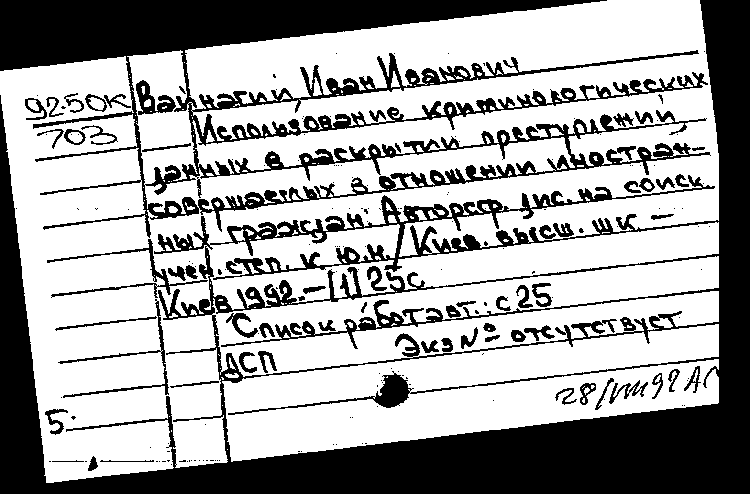 92-50К Вайнагий, Иван Иванович
703 Использование криминологических
данных в раскрытии преступлений,
совершаемых в отношении иностран-
ных граждан: Автореф. дис. на соиск.
учен. степ. к. ю.н. / Киев. высш. шк. –
Киев 1992. – [1] 25с
Список работ авт.: с. 25
ДСП Экз № отсутствует
5.